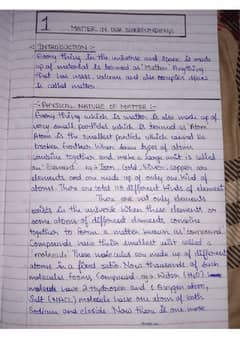 1
MATTER IN OUR SURROUNDINGS
INTRODUCTION :-
Every thing in the universe and space is made
up of material is termed as "Matter". Anything
that has mass, volume and also occupies space
is called matter.
PHYSICAL NATURE OF MATTER :-
Every thing which is matter is also made up of
very small particles which is termed as Atom
Atom is the smallest particle which cannot be
broken further. When same types of atoms
combine together and make a large unit is called
an "Element". eg → Iron, Gold, Silver, copper are
elements and are made up of only one kind of
atoms. There are total 118 different kinds of element
There are not only elements
exists in the universe. When these elements or
some atoms of different elements, combine
together to form a matter known as compound.
Compounds have their smallest unit called a
molecule. These molecules are made up of different
atoms in a fixed ratio. Now thousands of such
molecules forms, Compound. eg → Water (H2O)
molecule have 2 hydrogen and 1 oxygen atom,
Salt (NaCl) molecule have one atom of both
Sodium and cloride. Now there is one more